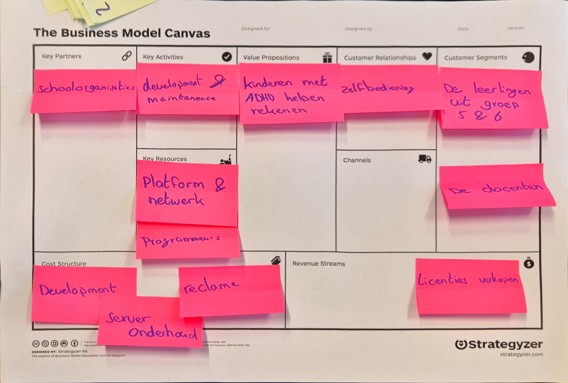 2
The Business Model Canvas
Designed for:
Designed by:
Date:
Version:
Key Partners
schoolorganisaties
Key Activities
development &
maintanence
Key Resources
Platform &
netwerk
Programmeurs
Value Propositions
kinderen met
ADHD helpen
rekenen
Customer Relationships
zelfbediening
Channels
Customer Segments
De leerlingen
uit groep
5 & 6
De docenten
Cost Structure
Development
Server
Onderhoud
reclame
Revenue Streams
Licenties verkopen
DESIGNED BY: Strategyzer AG
The makers of Business Model Generation and Strategyzer
Strategyzer
strategyzer.com